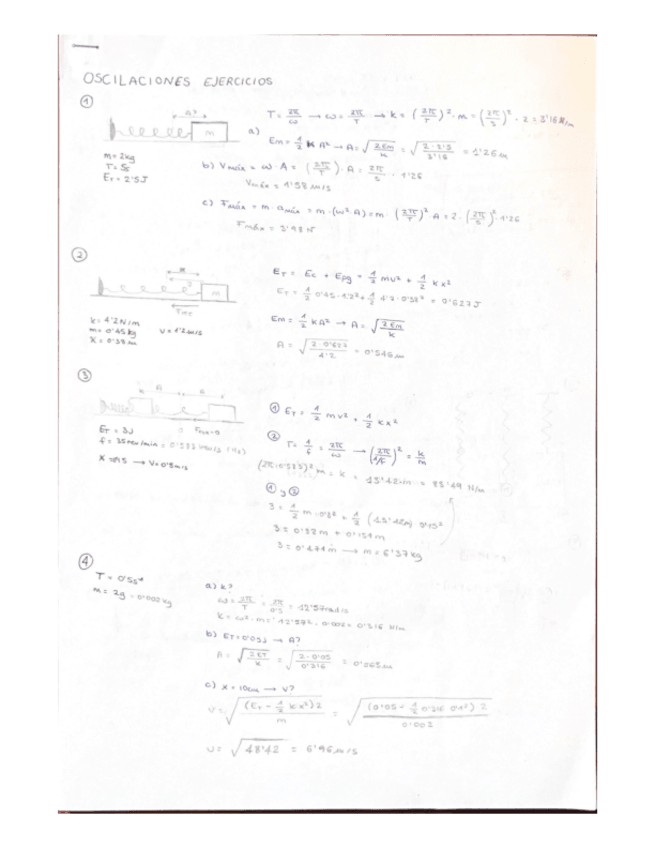 OSCILACIONES EJERCICIOS
①
m
m = 2kg
T = 5s
E_T = 2'5J
T = 2π/ω → ω = 2π/T → k = (2π/T)² · m = (2π/5)² · 2 = 3'16 N/m
a)
Em = 1/2 K A² → A = √(2Em/k) = √(2·2'5/3'16) = 1'26m
b) Vmáx = ω · A = (2π/T) · A = 2π/5 · 1'26
Vmáx = 1'58 m/s
c) Fmáx = m · amáx = m · (ω² A) = m · (2π/T)² · A = 2 · (2π/5)² · 1'26
Fmáx = 3'98 N
②
m
k = 4'2 N/m
m = 0'45 kg
V = 1'2 m/s
x = 0'38 m
E_T = Ec + Epg = 1/2 mv² + 1/2 kx²
E_T = 1/2 0'45 · 1'2² + 1/2 4'2 · 0'38² = 0'627J
Em = 1/2 KA² → A = √(2Em/k)
A = √(2·0'627/4'2) = 0'546m
③
A
E_T = 3J
f = 35 rev/min = 0'583 rev/s (Hz)
① E_T = 1/2 mv² + 1/2 kx²
② T = 1/f = 2π/ω → (2π/1/f)² = k/m
(2π·0'583)² m = k = 13'42m = 85'49 N/m
① y ②
3 = 1/2 m · 0'8² + 1/2 (13'42m) 0'15²
3 = 0'32m + 0'151m
3 = 0'471m → m = 6'37kg
④
T = 0'5s
m = 2g = 0'002kg
a) k?
ω = 2π/T = 2π/0'5 = 12'57rad/s
K = ω² · m = 12'57² · 0'002 = 0'316 N/m
b) E_T = 0'05J → A?
A = √(2E_T/k) = √(2·0'05/0'316) = 0'565m
c) x = 10cm → V?
V = √((E_T - 1/2 kx²)2/m) = √((0'05 - 1/2 0'316 0'1²) 2/0'002)
v = √48'42 = 6'96 m/s